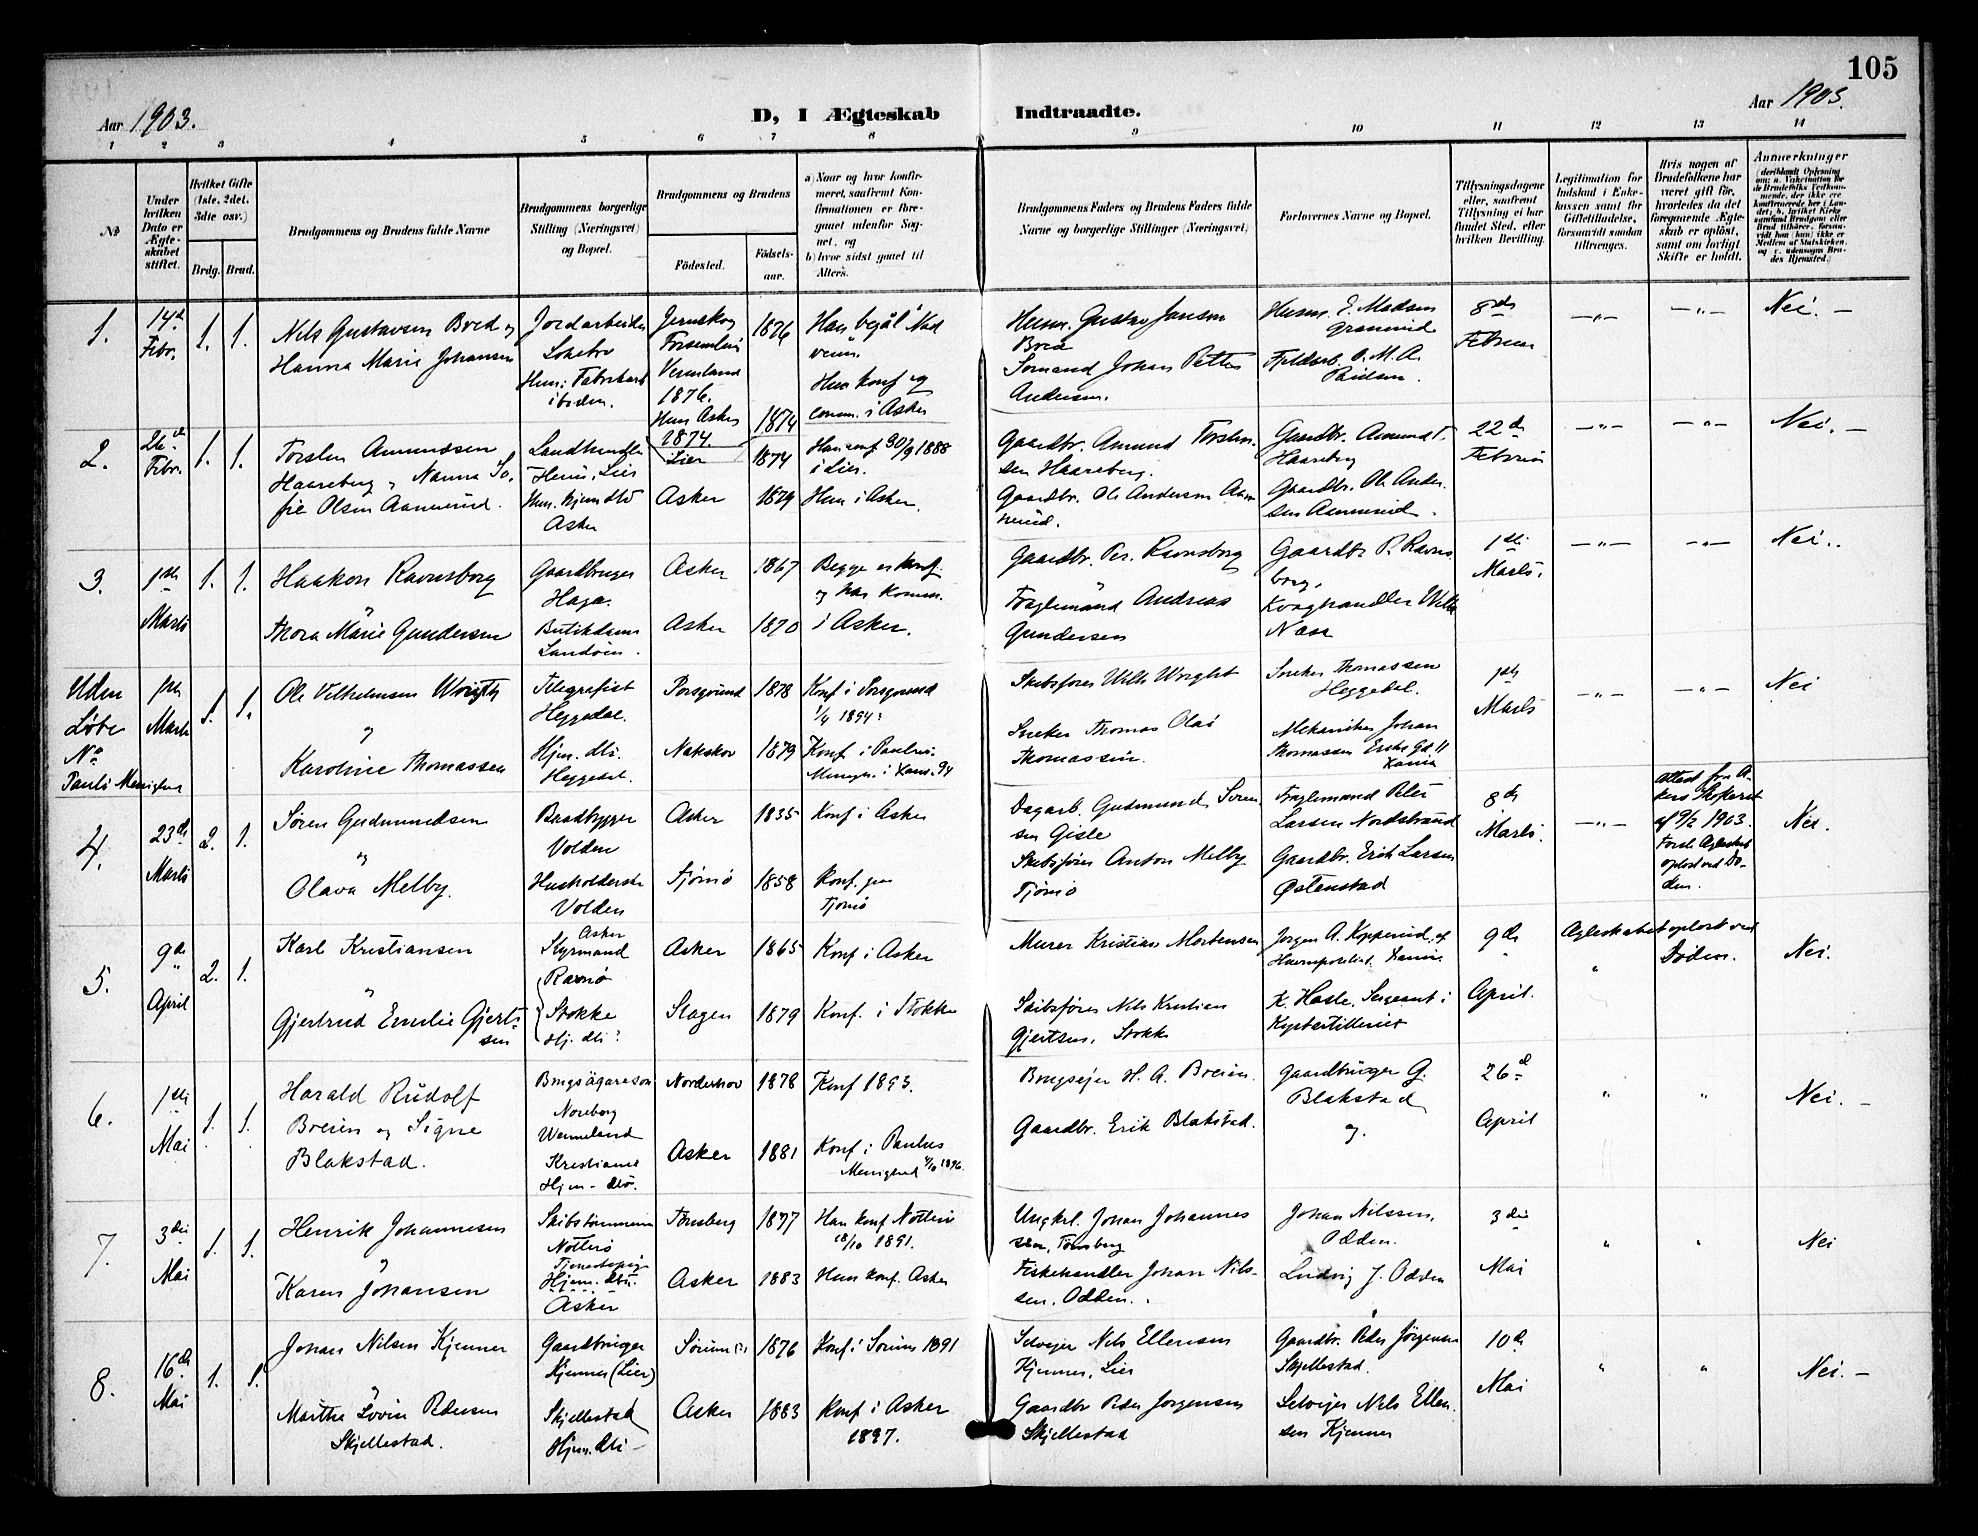 105
Aar 1903.
D, I Ægteskab Indtraadte.
Aar 1903.
1 2 3 4 5 6 7 8 9 10 11 12 13 14
№
Under hvilken Dato er Ægteskabet stiftet.
Hvilket Gifte (1ste, 2det, 3die osv.)
Brdg. Brud.
Brudgommens og Brudens fulde Navne
Brudgommens borgerlige Stilling (Næringsvei) og Bopæl.
Brudgommens og Brudens
Fødested.
Fødselsaar.
a) Naar og hvor konfirmeret, saafremt Konfirmationen er foregaaet udenfor Sognet, og
b) hvor sidst gaaet til Alters.
Brudgommens Faders og Brudens Faders fulde Navne og borgerlige Stillinger (Næringsvei)
Forlovernes Navne og Bopæl.
Tillysningsdagene eller, saafremt Tillysning ei har fundet Sted, efter hvilken Bevilling.
Legitimation for Indskud i Enkekassen samt for Giftetilladelse, forsaavidt saadan tiltrænges.
Hvis nogen af Brudefolkene har været gift før, hvorledes da det foregaaende Ægteskab er opløst, samt om lovligt Skifte er holdt.
Anmerkninger
1. 14d Febr. 1. 1.
Nils Gustavsen Bred og
Hanna Marie Johansen
Jordarbeider
Vermland
1876.
Hun Asker
1874.
1876
1874
Hun konf og
comm. i Asker
Husm. Gustav Jansen
Andersen.
8de
Februar
Nei. —
2. 26d Febr. 1. 1.
Torsten Amundsen
Haareberg og Nanna So-
fie Olsen Aamerud.
Landhandler
Lier
Asker
Lier 1874
Asker 1879
Han conf 30/9 1888
i Lier.
Hun i Asker.
Gaardbr. Amund Torsten-
sen Haareberg.
Gaardbr. Ole Andersen Aam
erud.
Gaardbr. Amund T.
Haareberg
Gaardbr. Ole Ander-
sen Aamerud.
22de
Februar
Nei. —
3. 1ste Marts 1. 1.
Haakon Ravnsborg
og
Thora Marie Gundersen
Gaardbruger
Haga.
Asker 1867
Asker 1870
Begge er konf.
og har komm.
i Asker.
Gaardbr. Per. Ravnsborg
Fraglemand Andreas
Gundersen
Gaardbr P. Ravns
borg.
Kvæghandler Wilh
Næss
1ste
Marts.
Nei..
Uden
Løbe
No
Pauli Menighed
1ste Marts 1. 1.
Ole Vilhelmsen Wright
og
Karoline Thomassen
Telegrafist
Heggedal.
Hjem. dtr.
Heggedal.
Porsgrund 1878
Nakskov 1879
Konf i Porsgrund
1/4 1894
Konf. i Paulus
Skibsfører Wilh Wright
Snekker Thomas Olai
Thomassen.
Snekker Thomassen
Heggedal.
Mekaniker Johan
Thomassen
1ste
Marts
Nei
4. 23de Marts 2. 1.
Søren Gudmundsen
og
Olava Melby.
Volden
Husholderske
Volden
Asker 1835
Tjømø 1858
Konf. i Asker
Konf. paa
Tjømø
Dagarb. Gudmund Søren-
sen Gisle
Skibsfører Anton Melby
Tjømø
Fraglemand Peter
Larsen Nordstrand
Gaardbr. Erik Larsen
Østenstad
8de
Marts.
Attest fra A-
kers Skifteret
af 9/2 1903.
Første Ægteskab
opløst ved Dø-
den.
Nei.
5. 9de April 2. 1.
Karl Kristiansen
og
Gjertrud Emilie Gjert-
sen
Asker
Styrmand
Stokke
Hj. dtr.
Asker 1865
Slagen 1879
Konf i Asker
Konf. i Stokke
Murer Kristian Mortensen
Skibsfører Nils Kristian
Gjertsen, Stokke
Jørgen A. Kopperud,
K. Hasle, Sergeant i
Kystartilleriet
9de
April.
Ægteskabet opløst ved
Døden.
Nei.
6. 1ste Mai 1. 1.
Harald Rudolf
Breien og Signe
Blakstad.
Noreborg
Wermeland
Kristiania
Hjem. dtr.
Norderhov 1878
Asker 1881
Konf 1893.
Konf i Paulus
Menighed 4/10 1896
Brugsejer H. A. Breien.
Gaardbr. Erik Blakstad.
Gaardbruger G.
Blakstad
og.
26d
April
Nei. —
7. 3die Mai 1. 1.
Henrik Johannesen
og
Karen Johansen
Skibstømmerm
Nøtterø
Tjenestepige
Hjem. dtr.
Asker
Tønsberg 1877
Asker 1883
Han konf. Nøtterø
18/10 1891.
Hun konf. Asker
Ungkrl. Johan Johannes
sen, Tønsberg
Fiskehandler Johan Nils-
sen. Odden.
Johan Nilssen,
Odden.
Ludvig J. Odden
3die
Mai
Nei
8. 16de Mai 1. 1.
Johan Nilsen Kjenner
og
Martha Lovise Pedersen
Skjellestad.
Gaardbruger
Kjenner (Lier)
Skjellestad
Hjem. dtr.
Sørum 1876
Asker 1883
Konf i Sørum 1891
Konf i Asker
1897.
Selvejer Nils Ellensen
Kjenner, Lier
Gaardbr Peder Jørgensen
Skjellestad
Gaardbr. Peder Jørgensen
Skjellestad.
Selvejer Nils Ellen-
sen Kjenner
10de
Mai
Nei. —